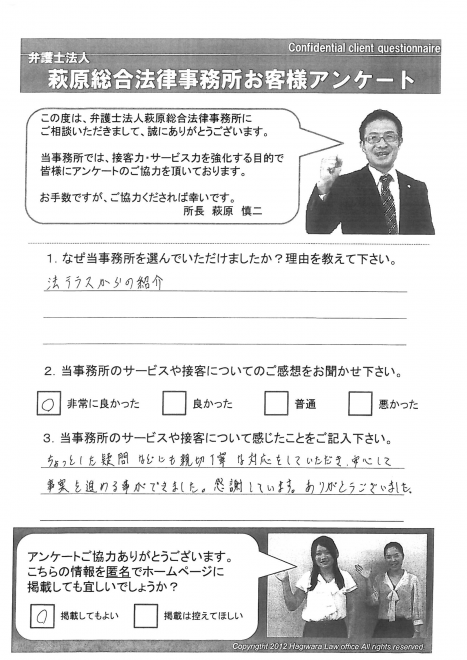 Confidential client questionnaire
弁護士法人
萩原総合法律事務所お客様アンケート
この度は、弁護士法人萩原総合法律事務所に
ご相談いただきまして、誠にありがとうございます。
当事務所では、接客力・サービス力を強化する目的で
皆様にアンケートのご協力を頂いております。
お手数ですが、ご協力くだされば幸いです。
所長 萩原 慎二
1. なぜ当事務所を選んでいただけましたか?理由を教えて下さい。
法テラスからの紹介
2. 当事務所のサービスや接客についてのご感想をお聞かせ下さい。
○ 非常に良かった 良かった 普通 悪かった
3. 当事務所のサービスや接客について感じたことをご記入下さい。
ちょっとした疑問などにも親切丁寧な対応をしていただき、安心して
事実を進める事ができました。感謝しています。ありがとうございました。
アンケートご協力ありがとうございます。
こちらの情報を匿名でホームページに
掲載しても宜しいでしょうか?
○ 掲載してもよい 掲載は控えてほしい
Copyright 2012 Hagiwara Law office All rights reserved